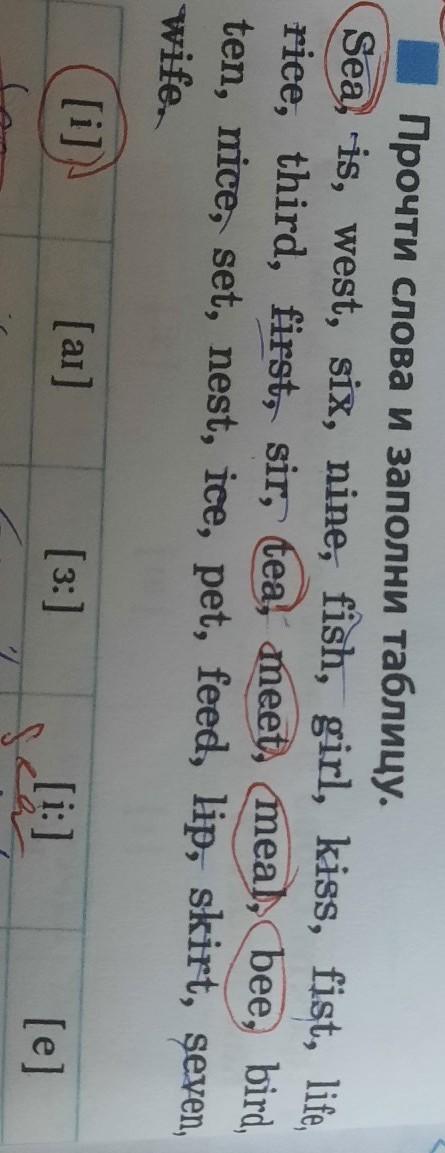 Прочти слова и заполни таблицу.
Sea, is, west, six, nine, fish, girl, kiss, fist, life,
rice, third, first, sir, tea, meet, meal, bee, bird,
ten, nice, set, nest, ice, pet, feed, lip, skirt, seven,
wife.
[i] [aɪ] [ɜ:] [i:] [e]
Sea